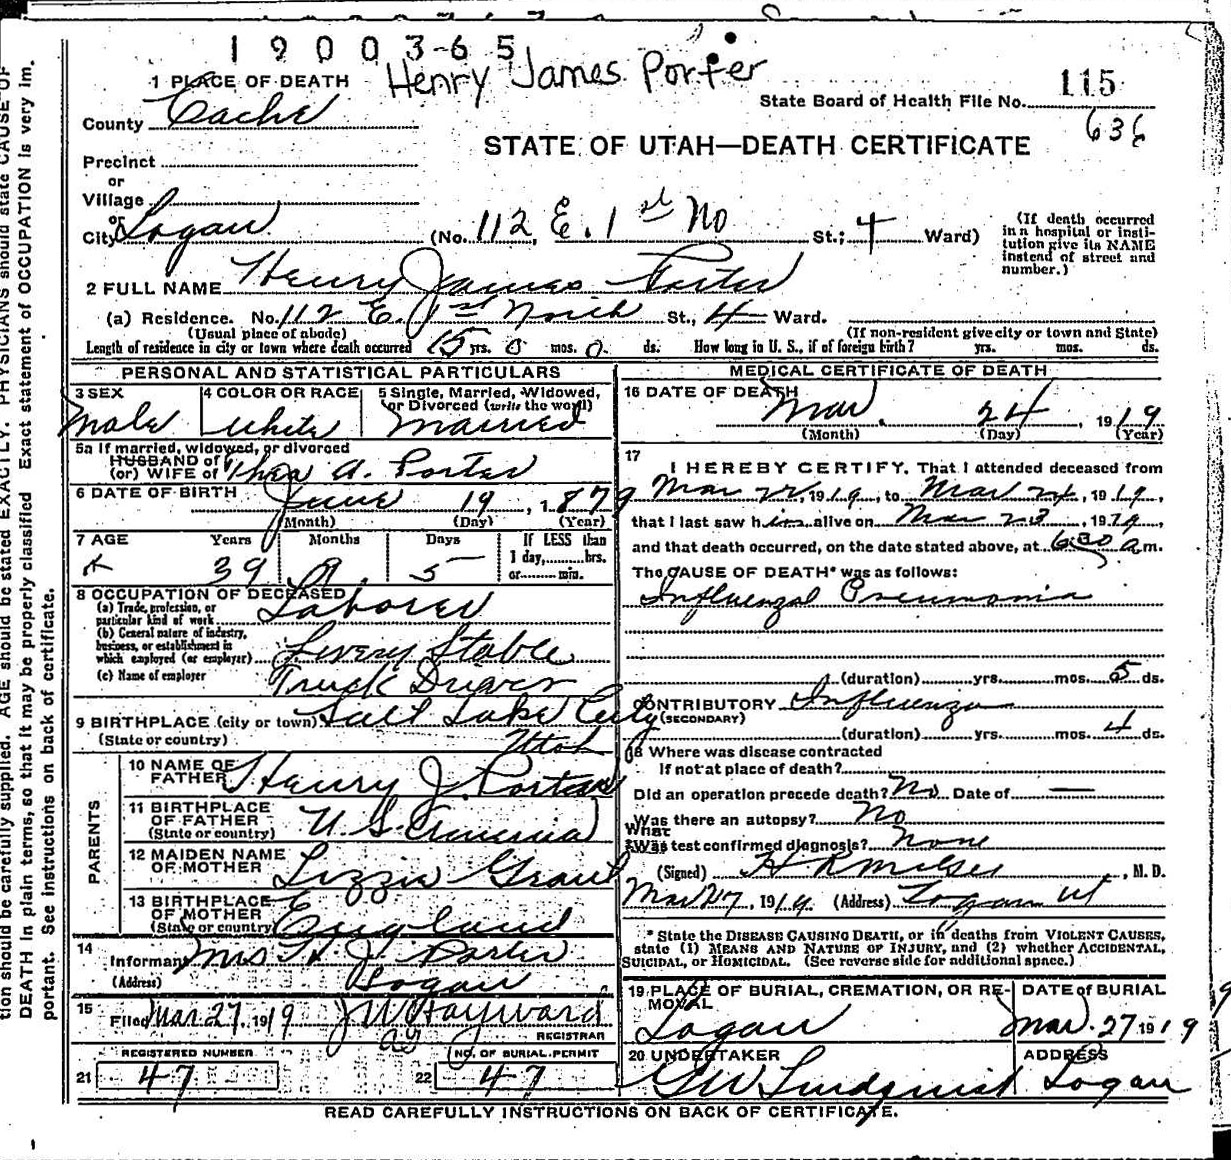 1 9 0 0 3 6 5
Henry James Porter
1 PLACE OF DEATH
State Board of Health File No. 115
636
County Cache
STATE OF UTAH—DEATH CERTIFICATE
Precinct
or
Village
or
City Logan (No. 112 E. 1st No St.; 4 Ward)
(If death occurred in a hospital or insti-
tution give its NAME
instead of street and
number.)
2 FULL NAME Henry James Porter
(a) Residence. No. 112 E. 1st North St., 4 Ward.
(Usual place of abode) (If non-resident give city or town and State)
Length of residence in city or town where death occurred 15 yrs. 0 mos. 0 ds. How long in U. S., if of foreign birth? yrs. mos. ds.
PERSONAL AND STATISTICAL PARTICULARS
3 SEX 4 COLOR OR RACE 5 Single, Married, Widowed,
or Divorced (write the word)
Male white Married
5a If married, widowed, or divorced
HUSBAND of
(or) WIFE of A. Porter
6 DATE OF BIRTH June 19, 1879
(Month) (Day) (Year)
7 AGE Years Months Days If LESS than
1 day,......hrs.
or......min.
39 9 5
8 OCCUPATION OF DECEASED
(a) Trade, profession, or
particular kind of work Laborer
(b) General nature of industry,
business, or establishment in
which employed (or employer) Livery Stable
(c) Name of employer Truck Driver
9 BIRTHPLACE (city or town) Salt Lake City
(State or country) Utah
PARENTS
10 NAME OF
FATHER Henry J. Porter
11 BIRTHPLACE
OF FATHER
(State or country) U. S. America
12 MAIDEN NAME
OF MOTHER Lizzie Grant
13 BIRTHPLACE
OF MOTHER
(State or country) England
14
Informant Mrs H. J. Porter
(Address) Logan
15
Filed Mar 27, 1919 J W Hayward
REGISTRAR
REGISTERED NUMBER NO. OF BURIAL PERMIT
21 47 22 47
MEDICAL CERTIFICATE OF DEATH
16 DATE OF DEATH
Mar. 24, 1919
(Month) (Day) (Year)
17
I HEREBY CERTIFY, That I attended deceased from
Mar 22, 1919, to Mar 24, 1919,
that I last saw him alive on Mar 23, 1919,
and that death occurred, on the date stated above, at 6:30 a m.
The CAUSE OF DEATH* was as follows:
Influenzal Pneumonia
(duration) yrs. mos. 5 ds.
CONTRIBUTORY Influenza
(SECONDARY)
(duration) yrs. mos. 4 ds.
18 Where was disease contracted
If not at place of death?
Did an operation precede death? No Date of —
Was there an autopsy? No
What
Was test confirmed diagnosis? none
(Signed) H R M, M. D.
Mar 27, 1919 (Address) Logan Ut
* State the DISEASE CAUSING DEATH, or in deaths from VIOLENT CAUSES,
state (1) MEANS AND NATURE OF INJURY, and (2) whether ACCIDENTAL,
SUICIDAL, or HOMICIDAL. (See reverse side for additional space.)
19 PLACE OF BURIAL, CREMATION, OR RE-
MOVAL
DATE of BURIAL
Logan Mar. 27 1919
20 UNDERTAKER ADDRESS
G W Lindquist Logan
READ CAREFULLY INSTRUCTIONS ON BACK OF CERTIFICATE.
tion should be carefully supplied. AGE should be stated EXACTLY. PHYSICIANS should state CAUSE OF
DEATH in plain terms, so that it may be properly classified Exact statement of OCCUPATION is very im.
portant. See instructions on back of certificate.